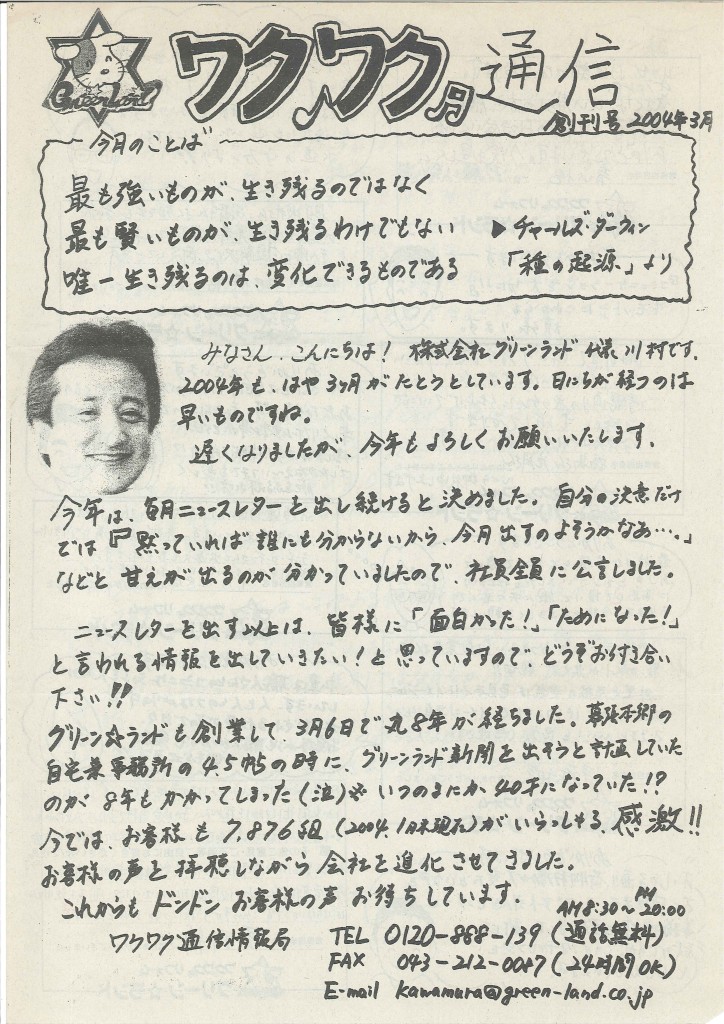 GreenLand
ワクワク 通信
創刊号 2004年3月
今月のことば
最も強いものが、生き残るのではなく
最も賢いものが、生き残るわけでもない
唯一生き残るのは、変化できるものである
▶チャールズ・ダーウィン
「種の起源」より
みなさん、こんにちは! 株式会社グリーンランド 代表 川村です。
2004年も、はや3ヶ月がたとうとしています。日にちが経つのは
早いものですね。
遅くなりましたが、今年もよろしくお願いいたします。
今年は、毎月ニュースレターを出し続けると決めました。自分の決意だけ
では『黙っていれば誰にも分からないから、今月出すのよそうかなあ…。』
などと甘えが出るのが分かっていましたので、社員全員に公言しました。
ニュースレターを出す以上は、皆様に「面白かった!」「ためになった!」
と言われる情報を出していきたい!と思っていますので、どうぞお付き合い
下さい!!
グリーン☆ランドも創業して、3月6日で丸8年が経ちました。幕張本郷の
自宅兼事務所の4.5帖の時に、グリーンランド新聞を出そうと計画していた
のが 8年もかかってしまった(泣) いつのまにか40才になっていた!?
今では、お客様も7,876組(2004.1月末現在)がいらっしゃる、感激!!
お客様の声を拝聴しながら会社を進化させてきました。
これからもドンドンお客様の声お待ちしています。
AM8:30〜PM20:00
ワクワク通信情報局 TEL 0120-888-139(通話無料)
FAX 043-212-0087(24時間OK)
E-mail kawamura@green-land.co.jp